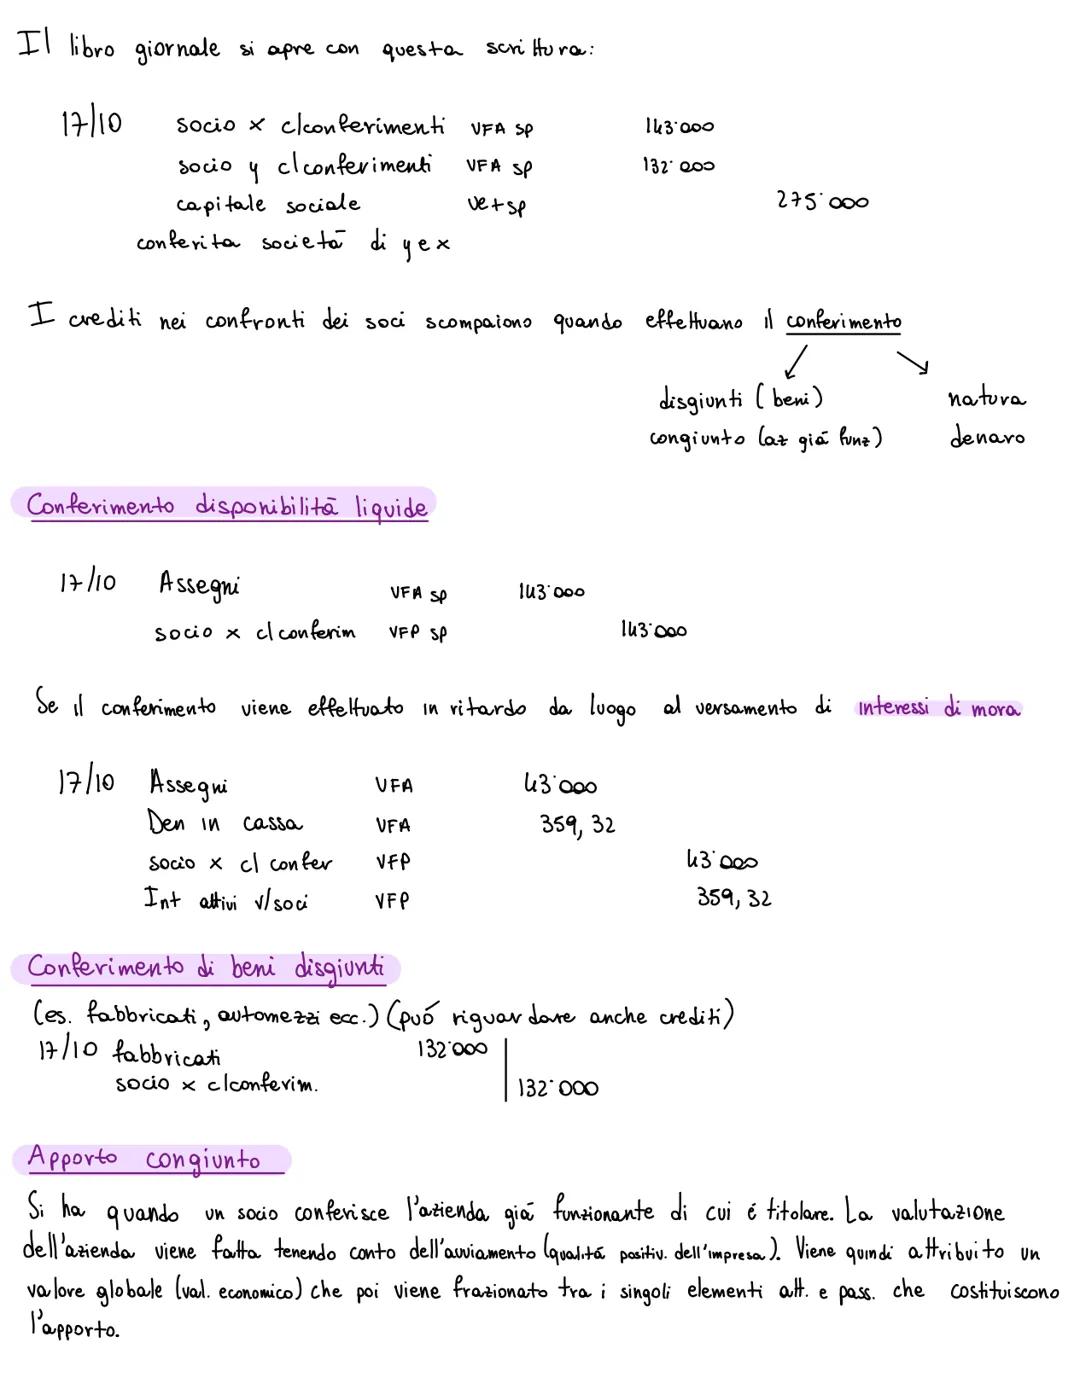 Il libro giornale si apre con questa scrittura:
17/10 socio x c/conferimenti VFA SP 143'000
socio y c/conferimenti VFA SP 132'000
capitale sociale ve+sp 275'000
conferita società di y e x
I crediti nei confronti dei soci scompaiono quando effettuano il conferimento
disgiunti (beni) natura
congiunto (az già funz) denaro
Conferimento disponibilità liquide
17/10 Assegni VFA SP 143'000
socio x c/conferim VFP SP 143'000
Se il conferimento viene effettuato in ritardo da luogo al versamento di interessi di mora
17/10 Assegni VFA 43'000
Den in cassa VFA 359,32
socio x c/ confer VFP 43'000
Int attivi v/soci VFP 359,32
Conferimento di beni disgiunti
(es. fabbricati, automezzi ecc.) (può riguardare anche crediti)
17/10 fabbricati 132'000
socio x c/conferim. 132'000
Apporto congiunto
Si ha quando un socio conferisce l'azienda già funzionante di cui é titolare. La valutazione
dell'azienda viene fatta tenendo conto dell'avviamento (qualità positiv. dell'impresa). Viene quindi attribuito un
valore globale (val. economico) che poi viene frazionato tra i singoli elementi att. e pass. che costituiscono
l'apporto.